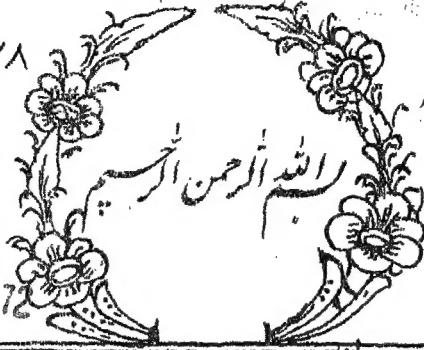 بسم الله الرحمن الرحيم
72